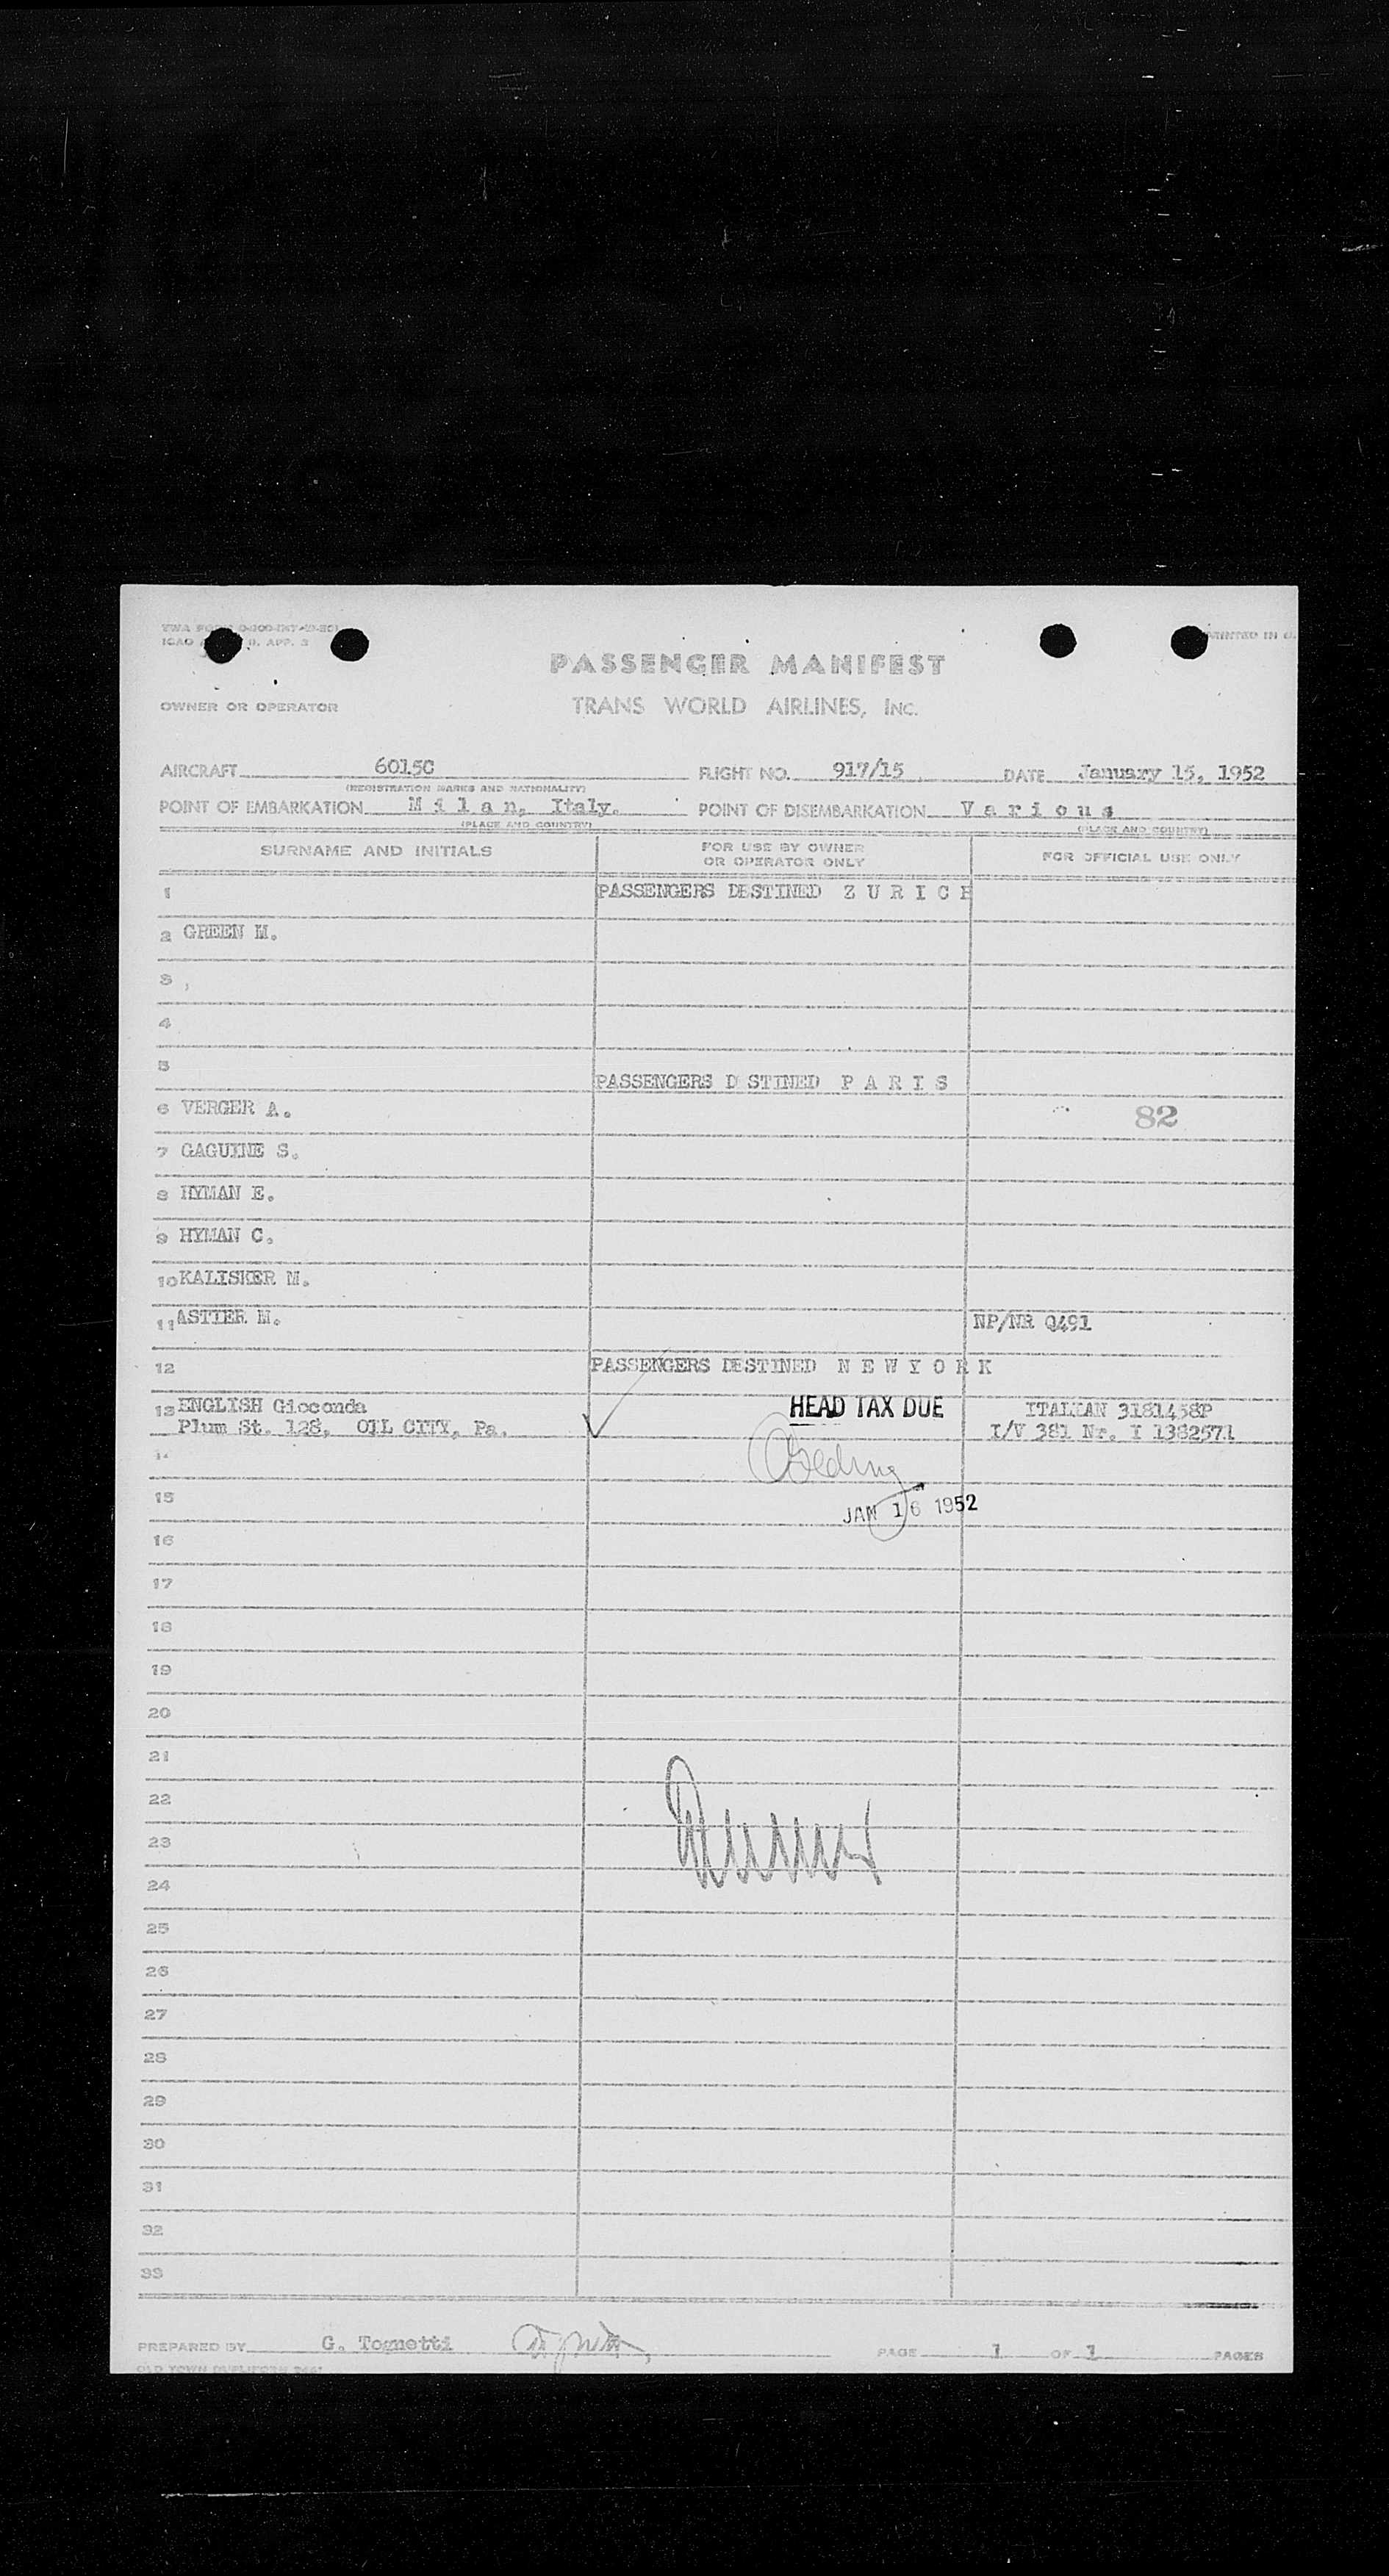 PRINTED IN U.
PASSENGER MANIFEST
OWNER OR OPERATOR TRANS WORLD AIRLINES, INC.
AIRCRAFT 6015C FLIGHT NO. 917/15 DATE January 15, 1952
(REGISTRATION MARKS AND NATIONALITY)
POINT OF EMBARKATION M i l a n, Italy. POINT OF DISEMBARKATION V a r i o u s
(PLACE AND COUNTRY) (PLACE AND COUNTRY)
SURNAME AND INITIALS FOR USE BY OWNER OR OPERATOR ONLY FOR OFFICIAL USE ONLY
1 PASSENGERS DESTINED Z U R I C H
2 GREEN M.
3
4
5 PASSENGERS D STINED P A R I S
6 VERGER A. 82
7 GAGUINE S.
8 HYMAN E.
9 HYMAN C.
10 KALISKER M.
11 ASTIER M. NP/NR Q491
12 PASSENGERS DESTINED N E W Y O R K
13 ENGLISH Gioconda HEAD TAX DUE ITALIAN 3181458P
Plum St. 128, OIL CITY, Pa. I/V 381 Nr. I 1382571
14
15 JAN 16 1952
16
17
18
19
20
21
22
23
24
25
26
27
28
29
30
31
32
33
PREPARED BY G. Tognetti PAGE 1 OF 1 PAGES